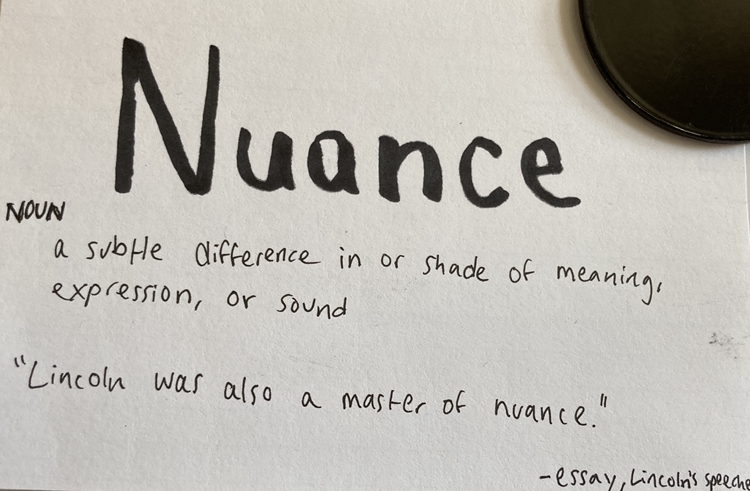 Nuance
NOUN
a subtle difference in or shade of meaning,
expression, or sound
"Lincoln was also a master of nuance."
-essay, Lincoln's speeche